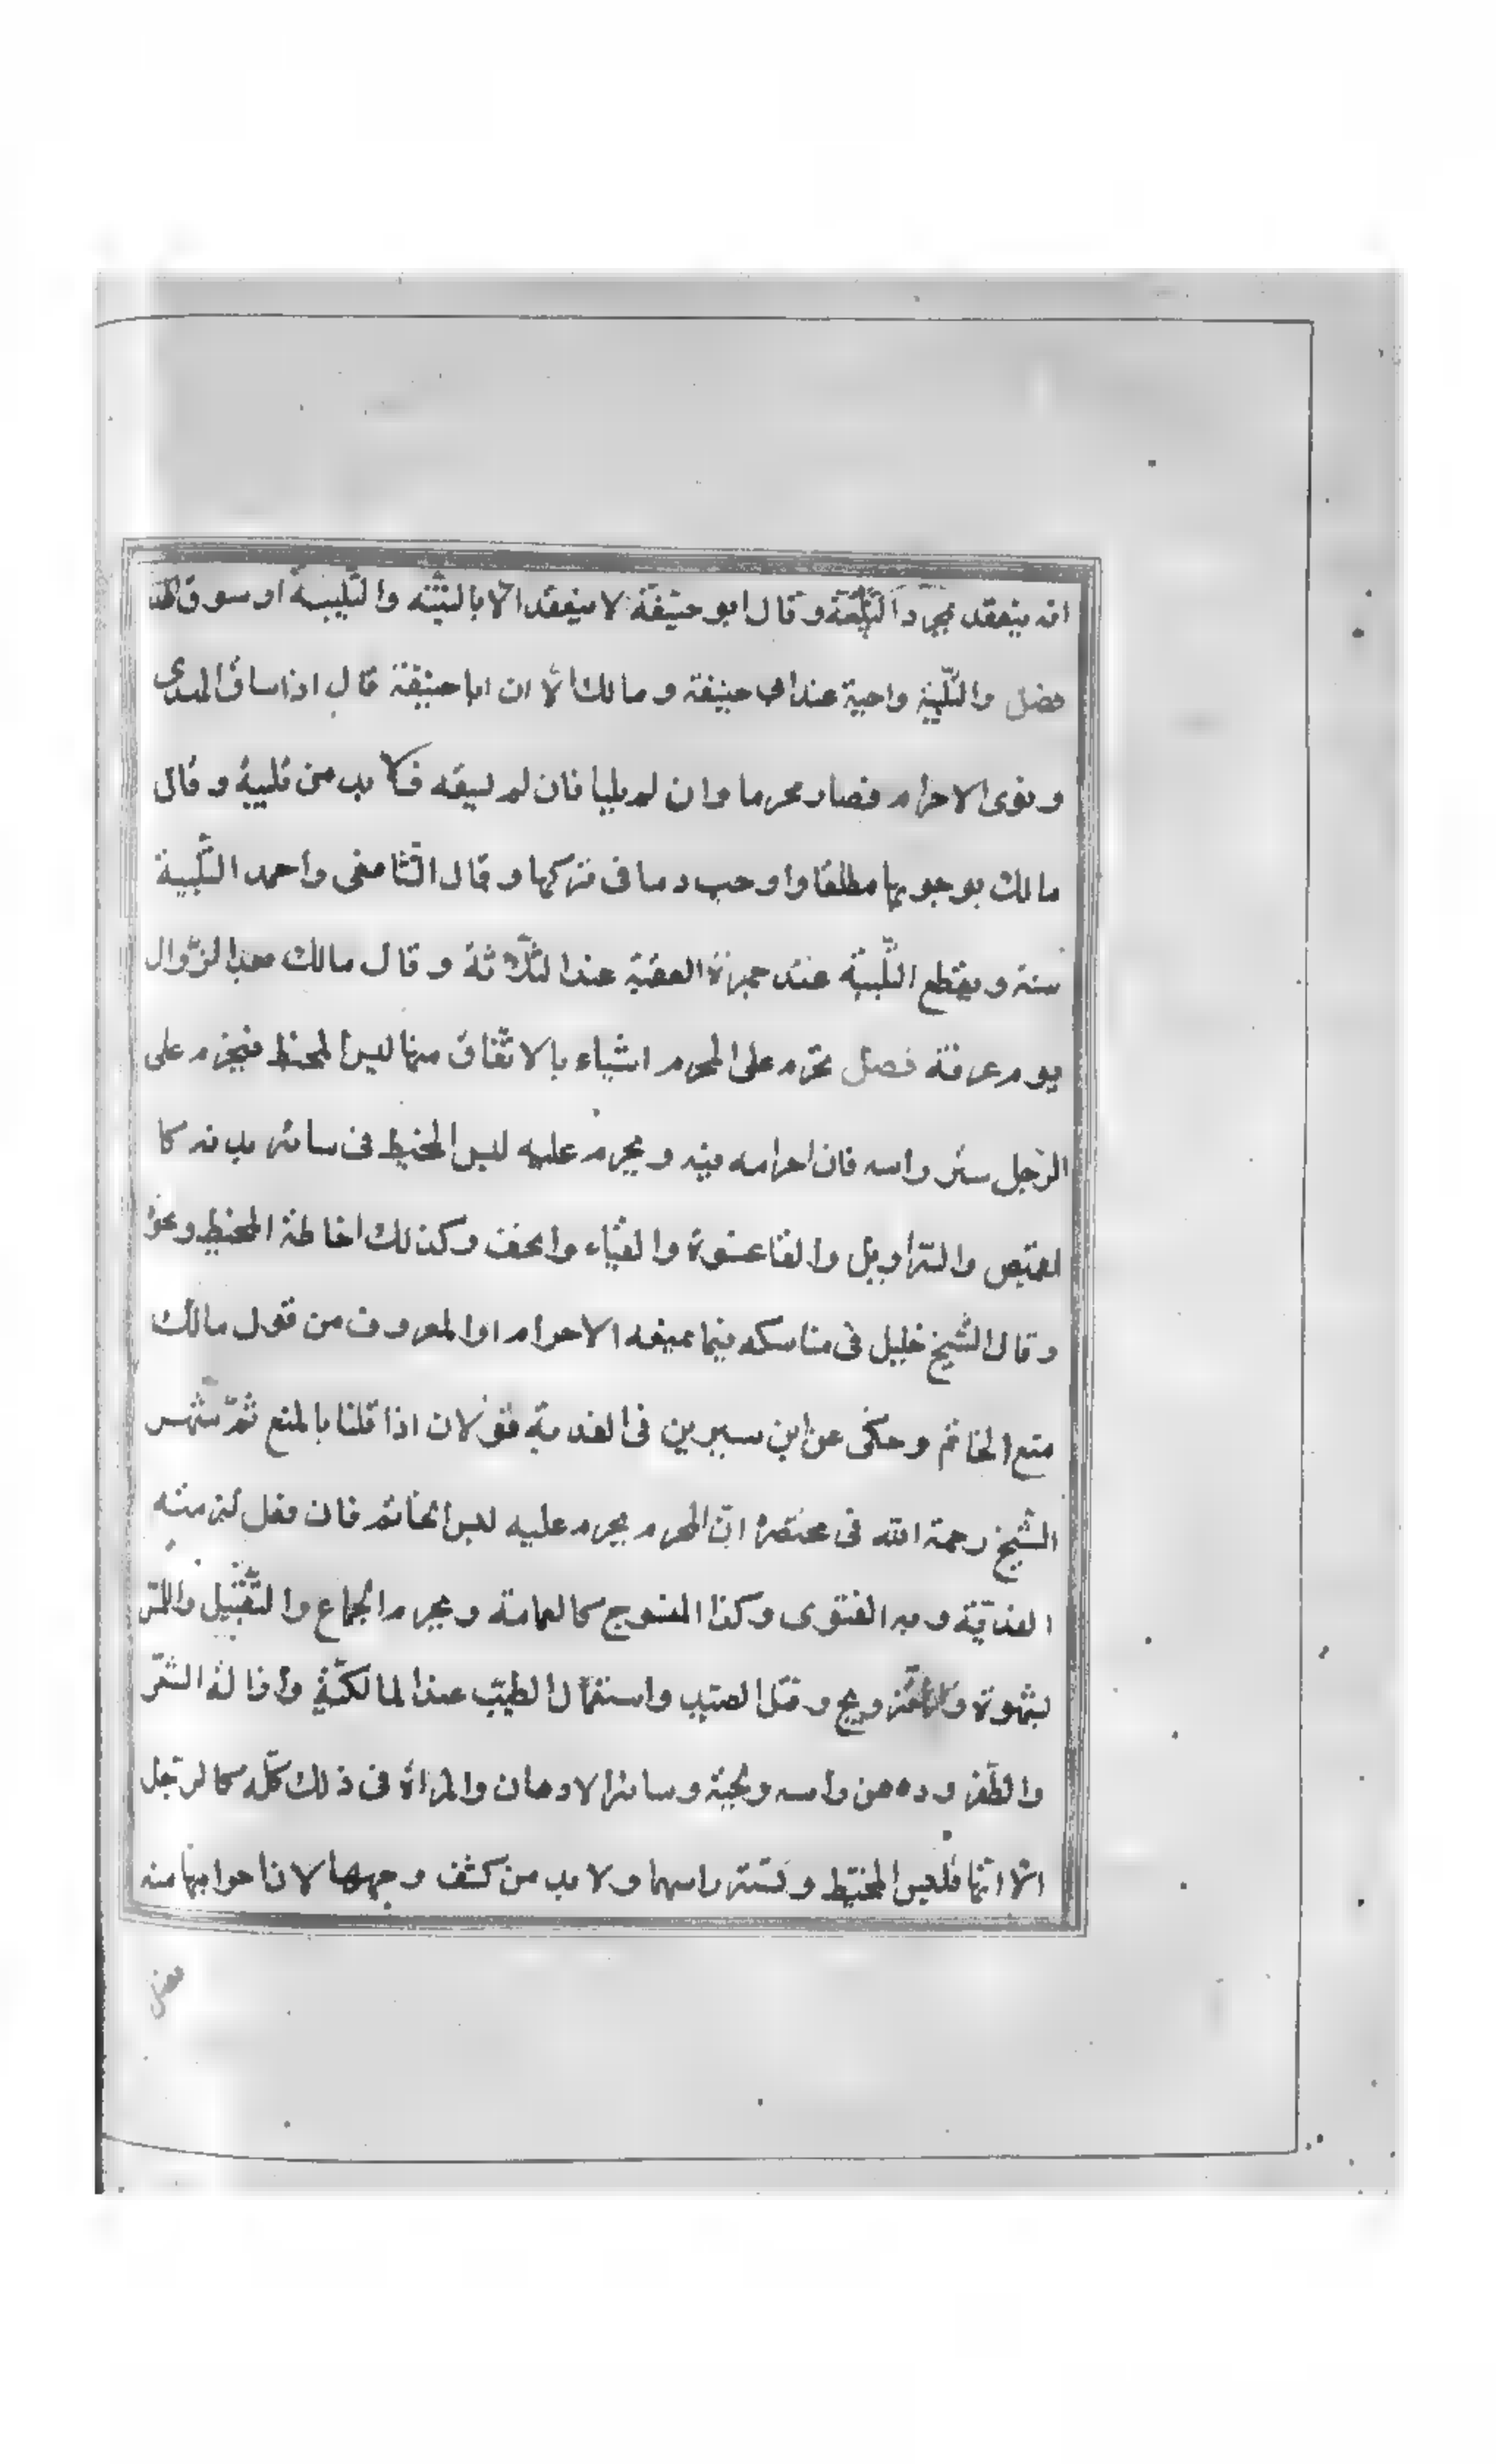 انه ينعقد بمجرد النية وقال ابو حنيفة لا ينعقد الا بالنية والتلبية او سوق الهد
فصل والتلبية واجبة عند ابى حنيفة ومالك الا ان ابا حنيفة قال اذا ساق الهدى
ونوى الاحرام فصار محرما وان لم يلبيا فان لم يسقه فلا بد من تلبية وقال
مالك بوجوبها مطلقا واوجب دما فى تركها وقال الشافعى واحمد التلبية
سنة ويقطع التلبية عند جمرة العقبة عند الثلاثة وقال مالك بعد الزوال
يوم عرفة فصل تحرم على المحرم اشياء بالاتفاق منها لبس المخيط فيحرم على
الرجل ستر راسه فان احرامه فيه ويحرم عليه لبس المخيط فى سائر بدنه كا
لقميص والسراويل والقلنسوة والقباء والخف وكذلك اخاطة المخيط ونحو
وقال الشيخ خليل فى مناسكه فيما يمنعه الاحرام او المعروف من قول مالك
منع الخاتم وحكى عن ابن سيرين فى الفدية قولان اذا قلنا بالمنع ثم شهر
الشيخ رحمة الله فى مختصره ان المحرم يحرم عليه لبس الخاتم فان فعل لزمته
الفدية وبه الفتوى وكذا المنسوج كالعمامة ويحرم الجماع والتقبيل واللمس
بشهوة والتزويج وقتل الصيد واستعمال الطيب عند المالكية وازالة الشعر
والظفر ودهن راسه ولحيته وسائر الادهان والمراة فى ذلك كله كالرجل
الا انها تلبس المخيط وتستر راسها ولا بد من كشف وجهها لان احرامها منه
فصل